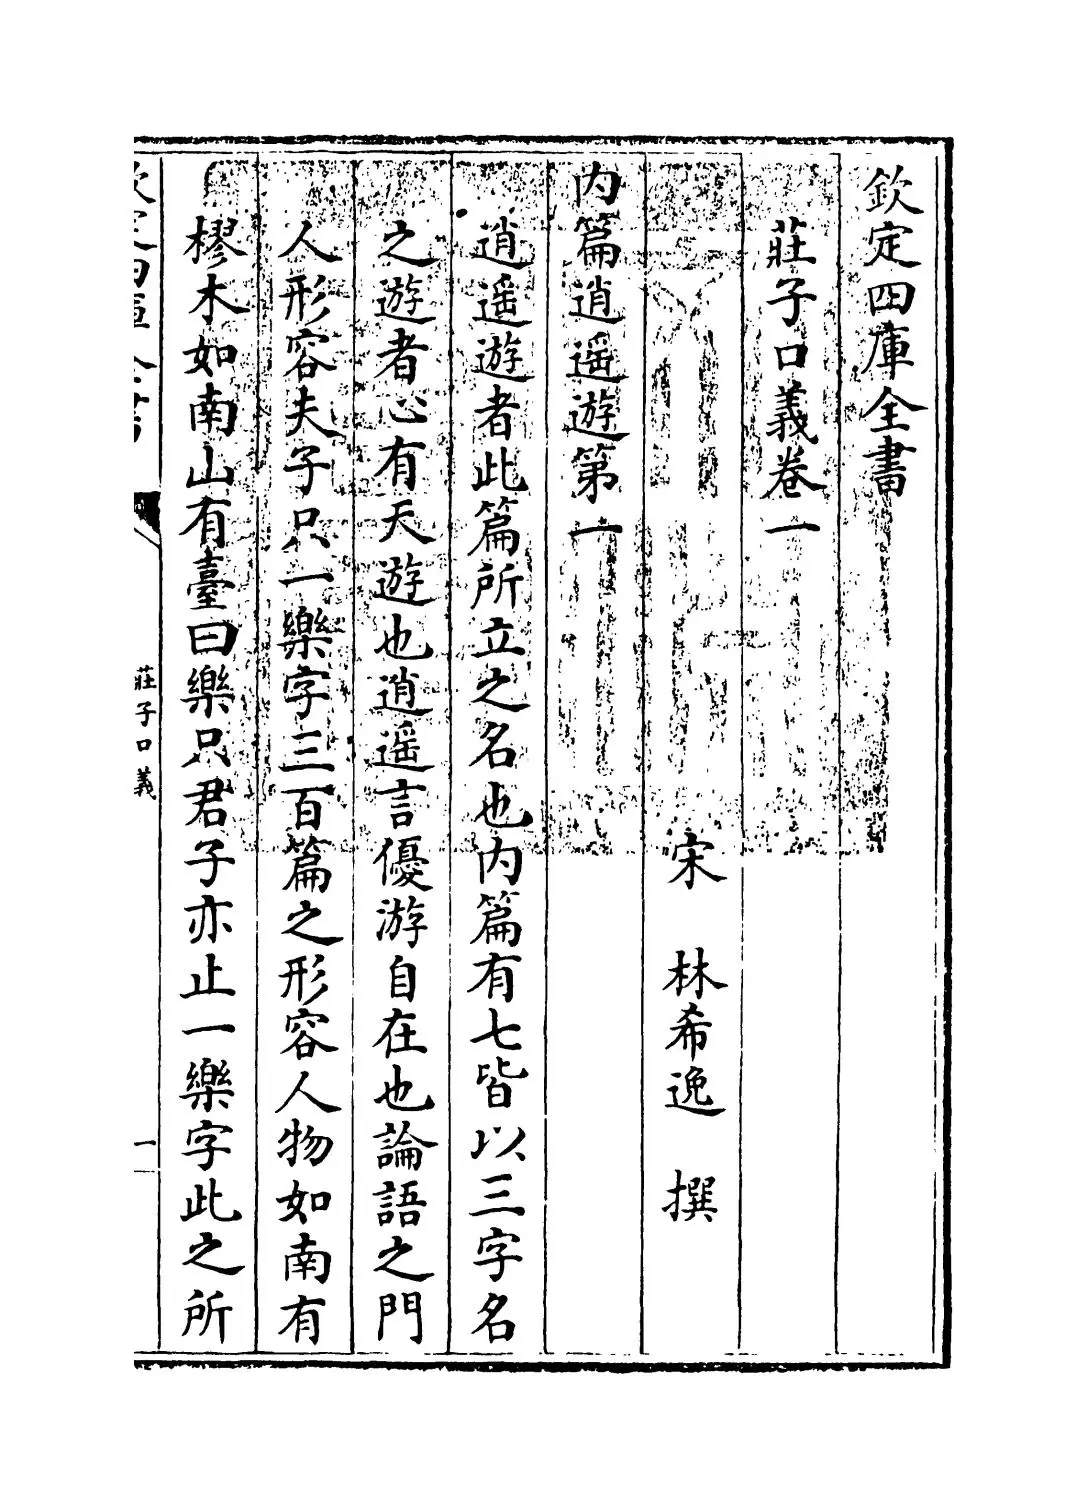 欽定四庫全書
莊子口義卷一
宋 林希逸 撰
内篇逍遥遊第一
逍遥遊者此篇所立之名也内篇有七皆以三字名
之遊者心有天遊也逍遥言優游自在也論語之門
人形容夫子只一樂字三百篇之形容人物如南有
樛木如南山有臺曰樂只君子亦止一樂字此之所
莊子口義
一